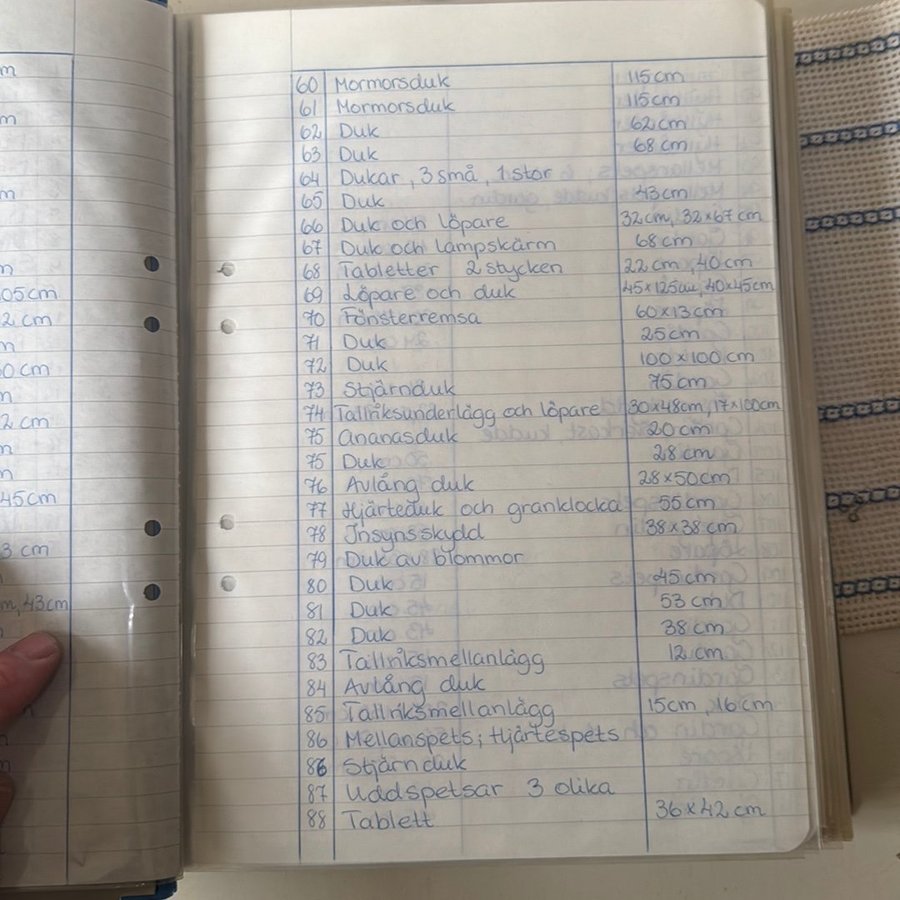 m
m
m
m
05cm
2 cm
m
0 cm
m
2 cm
m
m
45cm
3 cm
m, 43cm
60 Mormorsduk 115cm
61 Mormorsduk 115cm
62 Duk 62cm
63 Duk 68 cm
64 Dukar, 3 små, 1 stor
65 Duk 43cm
66 Duk och löpare 32cm, 32×67cm
67 Duk och lampskärm 68cm
68 Tabletter 2 stycken 22cm, 40cm
69 Löpare och duk 45×125cm, 40×45cm
70 Fönsterremsa 60×13cm
71 Duk 25cm
72 Duk 100×100 cm
73 Stjärnduk 75cm
74 Tallriksunderlägg och löpare 30×48cm, 17×100cm
75 Ananasduk 20cm
75 Duk 28cm
76 Avlång duk 28×50cm
77 Hjärteduk och granklocka 55cm
78 Insynsskydd 38×38cm
79 Duk av blommor
80 Duk 45cm
81 Duk 53cm
82 Duk 38cm
83 Tallriksmellanlägg 12cm
84 Avlång duk
85 Tallriksmellanlägg 15cm, 16cm
86 Mellanspets; Hjärtespets
86 Stjärnduk
87 Uddspetsar 3 olika
88 Tablett 36×42cm